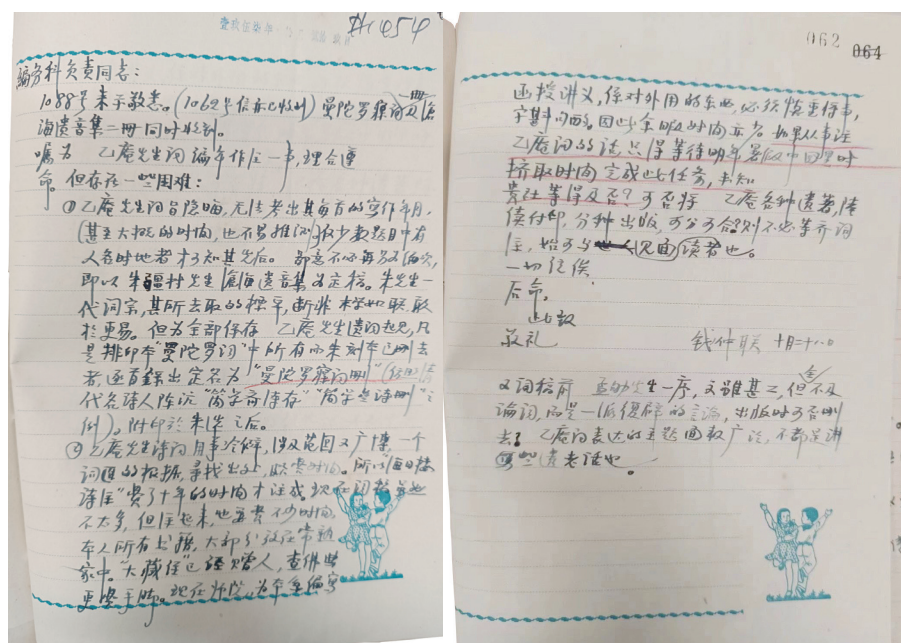 864454
编务科负责同志:
1088号来示敬悉。(1062号信亦已收到)曼陀罗寱词一册及沧
海遗音集二册同时收到。
嘱为 乙庵先生词编年作注一事,理合遵
命。但存在一些困难:
①乙庵先生词旨隐晦,无法考出其每首的写作年月,
(甚至大概的时间,也不易推测)极少数题目中有
人名时地者才可知其先后。鄙意不必再分
即以朱彊村先生沧海遗音集为定稿。朱先生一
代词宗,其所去取的标准,断非
于更易。但为全部保存 乙庵先生遗词起见,凡
是排印本“曼陀罗词”中所有而朱刻本已删去
者,逐首录出定名为“曼陀罗寱词删”(
代名诗人陈沆“简学斋诗存”“简学斋诗删”之
例)。附印于朱选之后。
②乙庵先生诗词用事冷僻,涉及范围又广博,一个
词汇的根据,寻找出处,很费时间。所以“海日楼
诗注”费了十年的时间才注成。现在词数量也
不太多,但注起来,也要费不少时间,
本人所有书籍,大部分放在常熟
家中。“大藏经”已经赠人,查佛典
更感手脚。现在我院,为本系编写
062 064
函授讲义,系对外用的东西,必须慎重行事,
字斟句酌。因此余暇时间不多。如果从事注
乙庵词的话,只得等待明年暑假中回里时
挤取时间完成此任务,未知
贵社等得及否?可否将 乙庵各种遗著,陆
续付印,分种出版,可分可合,则不必等齐词
注,始可与见面读者也。
一切统候
后命。
此致
敬礼
钱仲联 十月十八日
又词稿前 孟劬先生一序,文虽甚工,但不及
论词,而是一派复辟的言论,出版时可否删
去?乙庵词表达的主题面较广泛,不都是讲
那些遗老话也。